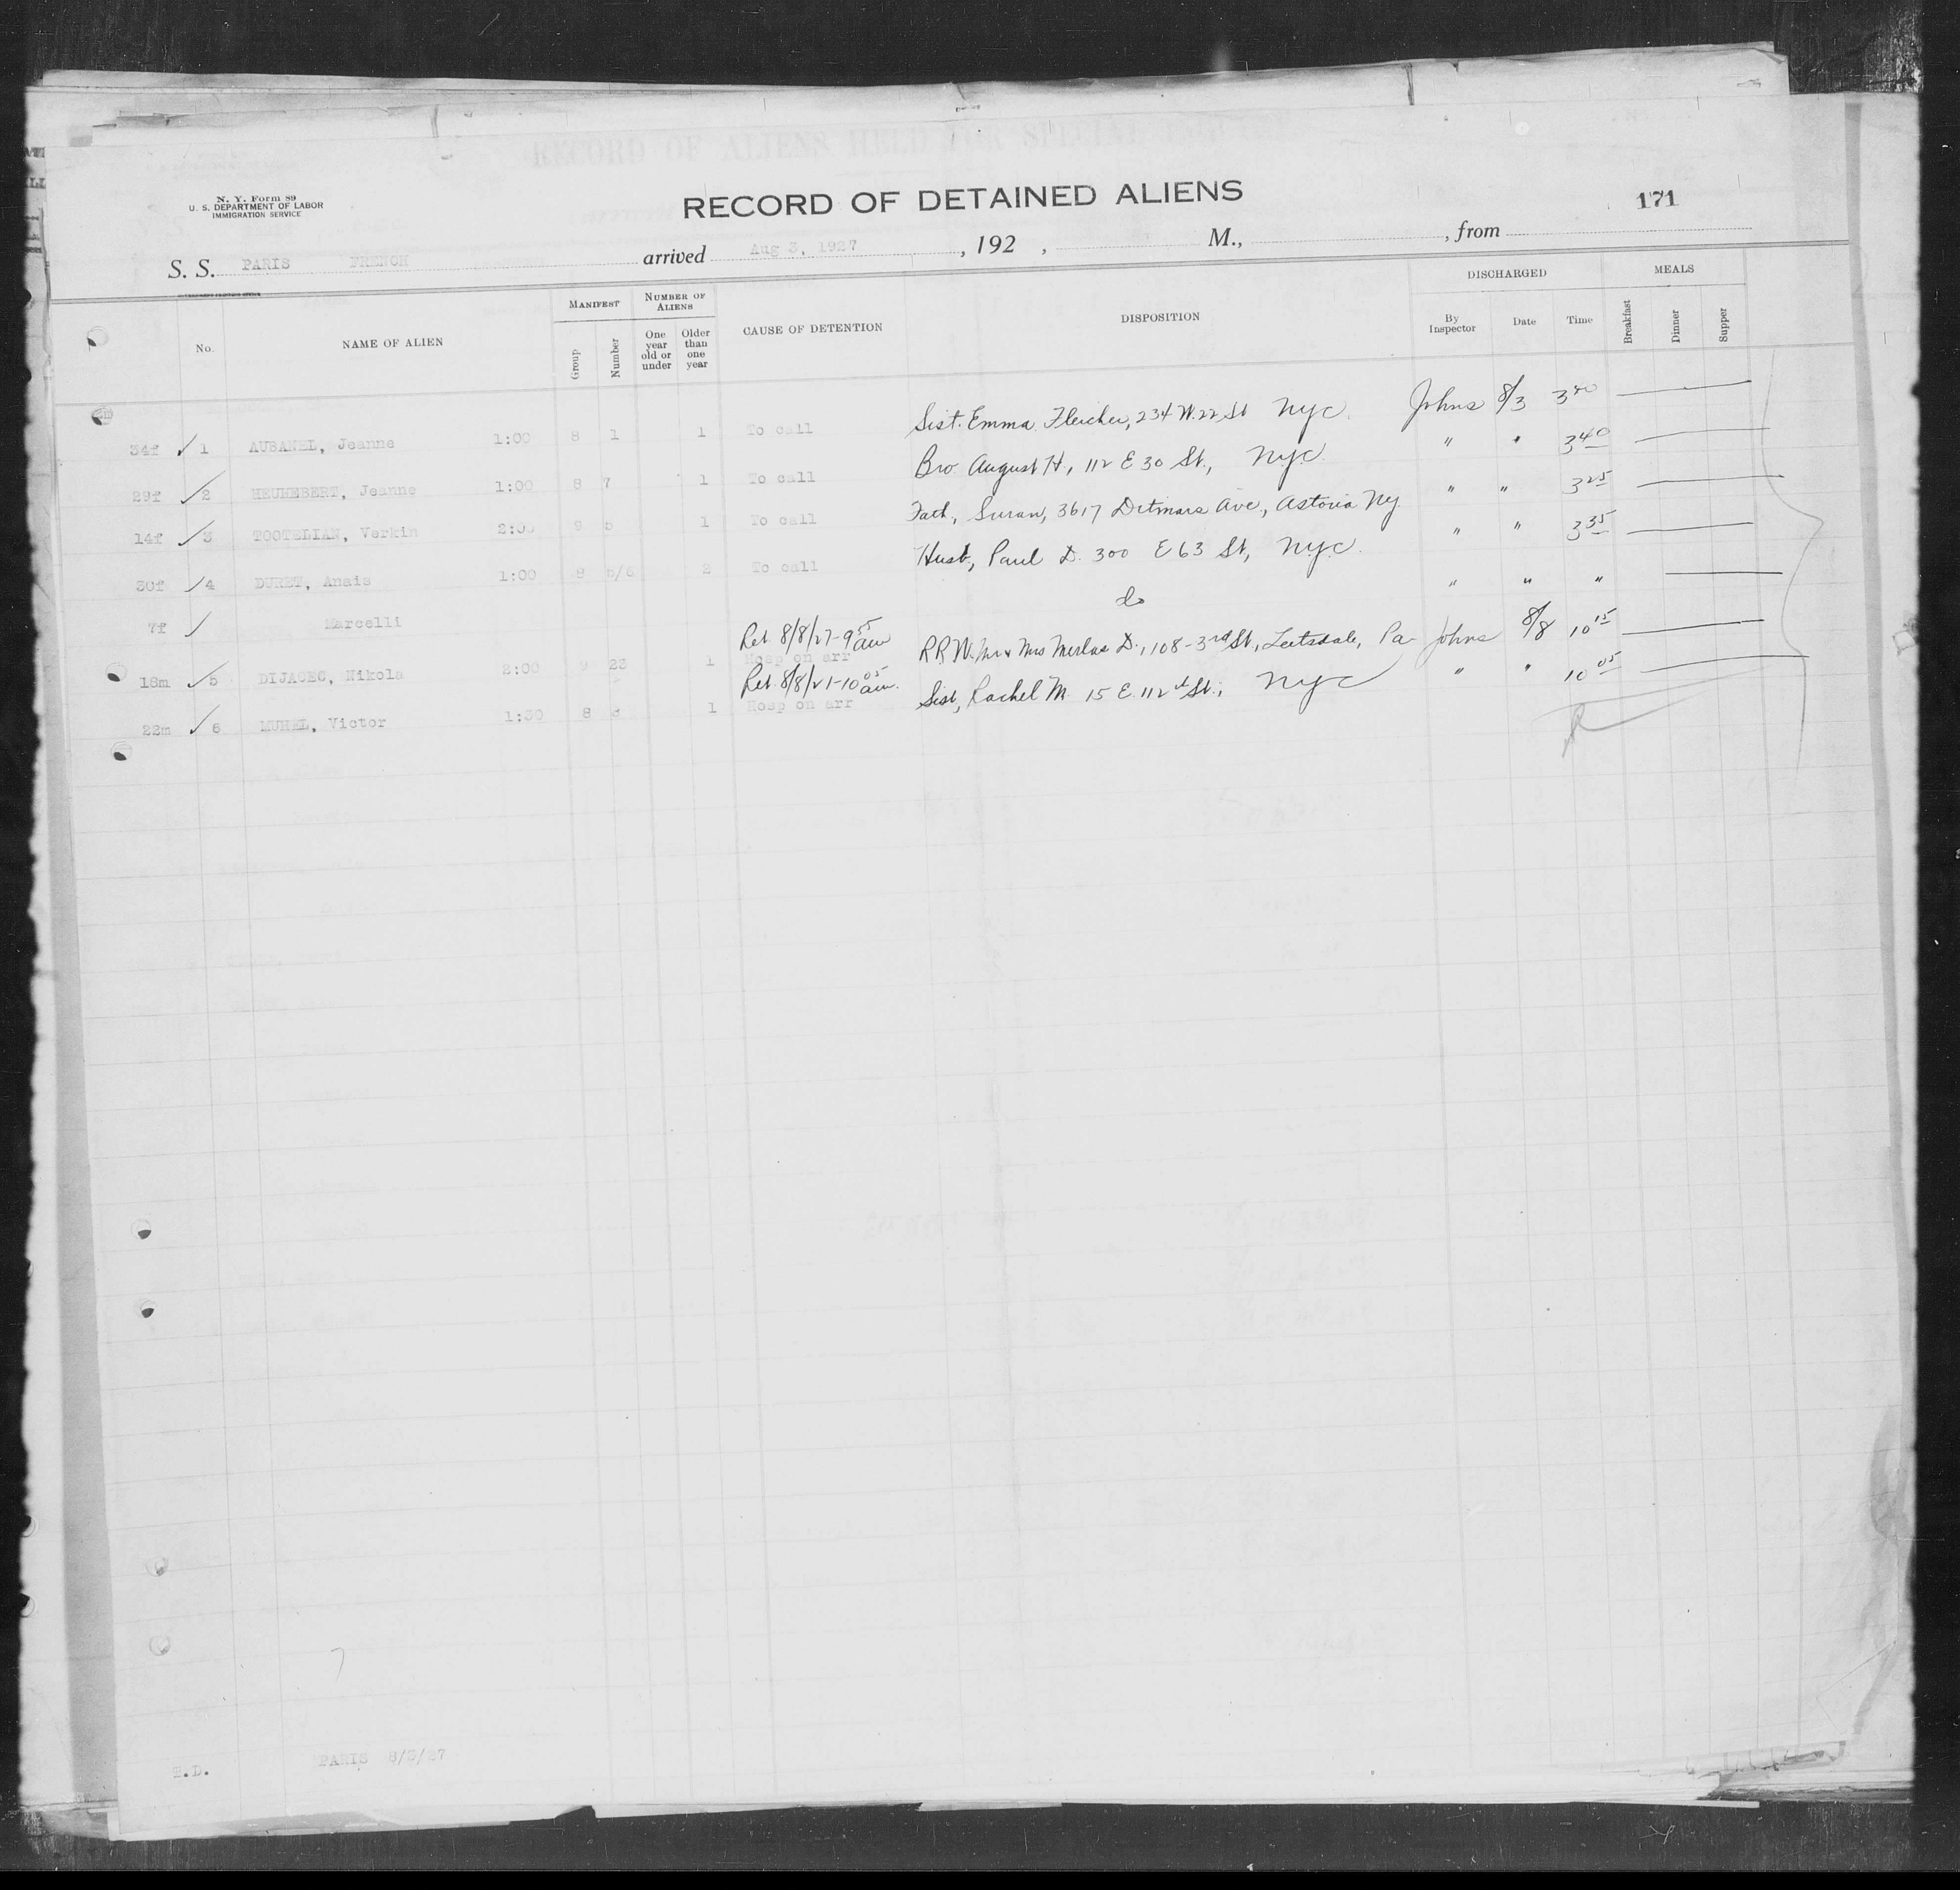 N. Y. Form 89
U. S. DEPARTMENT OF LABOR
IMMIGRATION SERVICE
RECORD OF DETAINED ALIENS
171
S. S. PARIS FRENCH arrived Aug 3, 1927, 192 , M., , from
No. NAME OF ALIEN MANIFEST Group Number NUMBER OF ALIENS One year old or under Older than one year CAUSE OF DETENTION DISPOSITION DISCHARGED By Inspector Date Time MEALS Breakfast Dinner Supper
34f ✓ 1 AUBANEL, Jeanne 1:00 8 1 1 To call Sist. Emma Fleicher, 234 W. 22 St NYC. Johns 8/3 3 40
29f ✓ 2 HEUMEBERT, Jeanne 1:00 8 7 1 To call Bro. August H, 112 E 30 St., NYC. " " 3 40
14f ✓ 3 TOOTELIAN, Verkin 2:00 9 5 1 To call Fath, Suran, 3617 Ditmars Ave, Astoria NY " " 3 25
30f ✓ 4 DURET, Anais 1:00 8 5/6 2 To call Husb, Paul D. 300 E 63 St, NYC. " " 3 35
7f ✓ Marcelli do " " "
18m ✓ 5 DIJACEC, Nikola 2:00 9 23 1 Hosp on arr Rel 8/8/27-9 55 am RRW. Mr & Mrs D., 108-3rd St., Leetsdale, Pa- Johns 8/8 10 15
22m ✓ 6 MUHEL, Victor 1:30 8 1 Hosp on arr Rel 8/8/21-10 05 am. Sist, Rachel M. 15 E. 112th St., NYC " " 10 05
PARIS 8/3/27